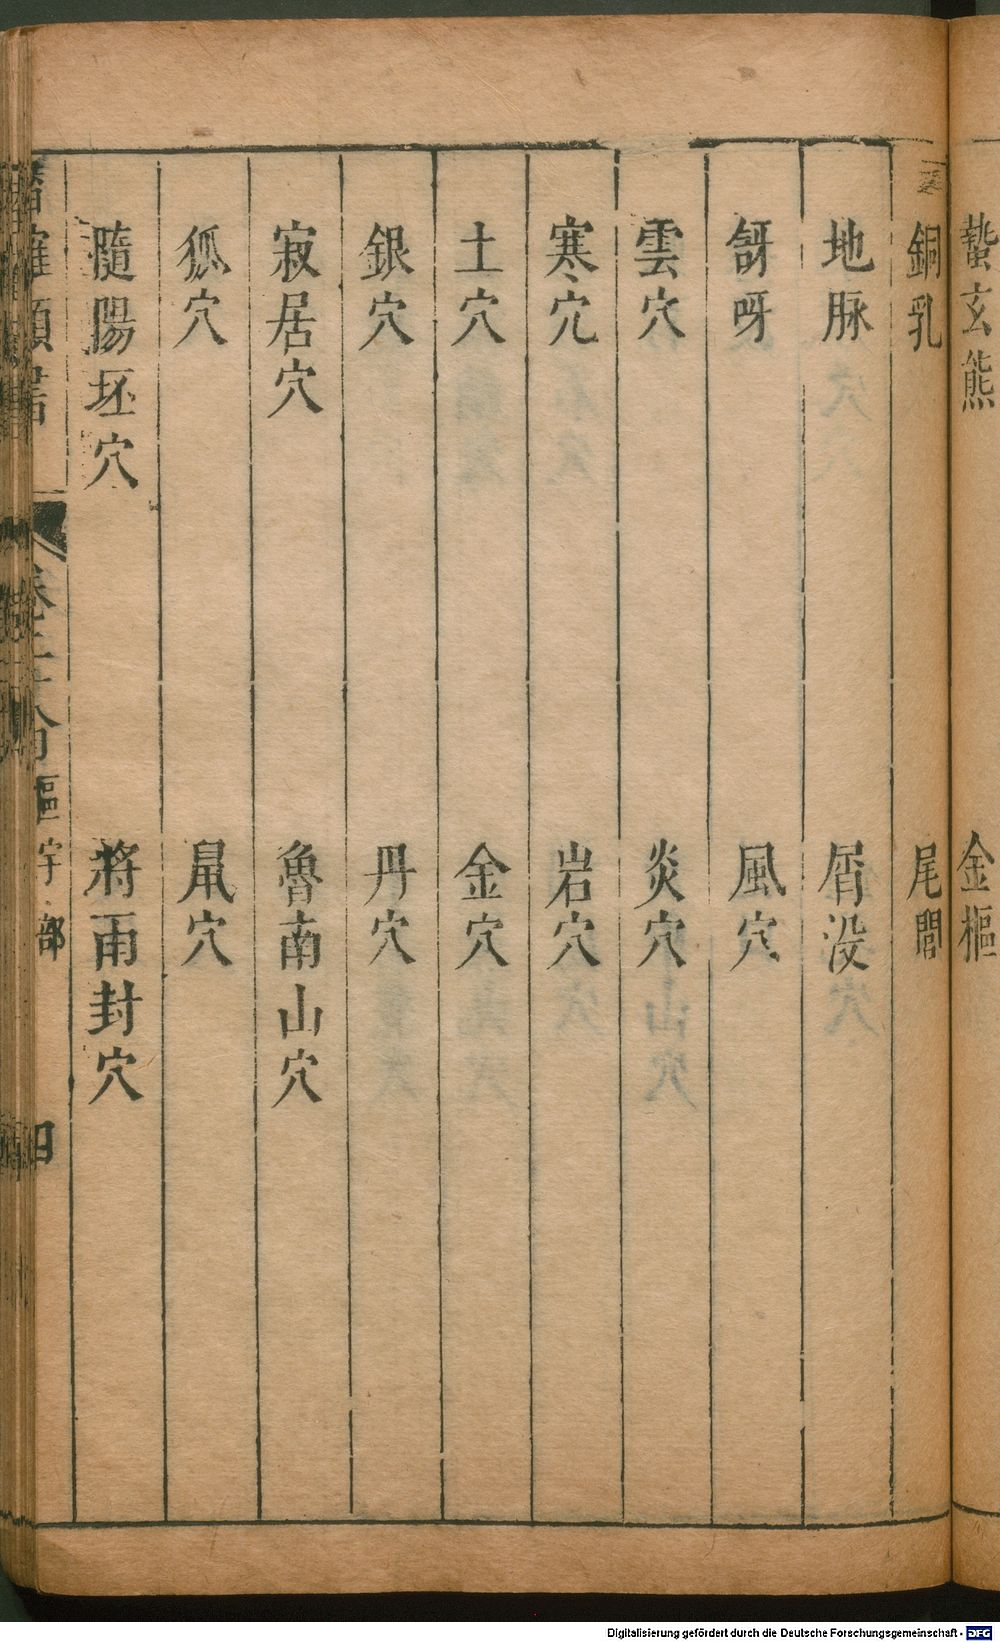 蟄玄熊　金樞
銅乳　尾閭
地脉　屑没
谺呀　風穴
雲穴　炎穴
寒穴　岩穴
土穴　金穴
銀穴　丹穴
寂居穴　魯南山穴
狐穴　鼠穴
隨陽坯穴　將雨封穴
類書　卷二十八　區宇部　四
Digitalisierung gefördert durch die Deutsche Forschungsgemeinschaft - DFG